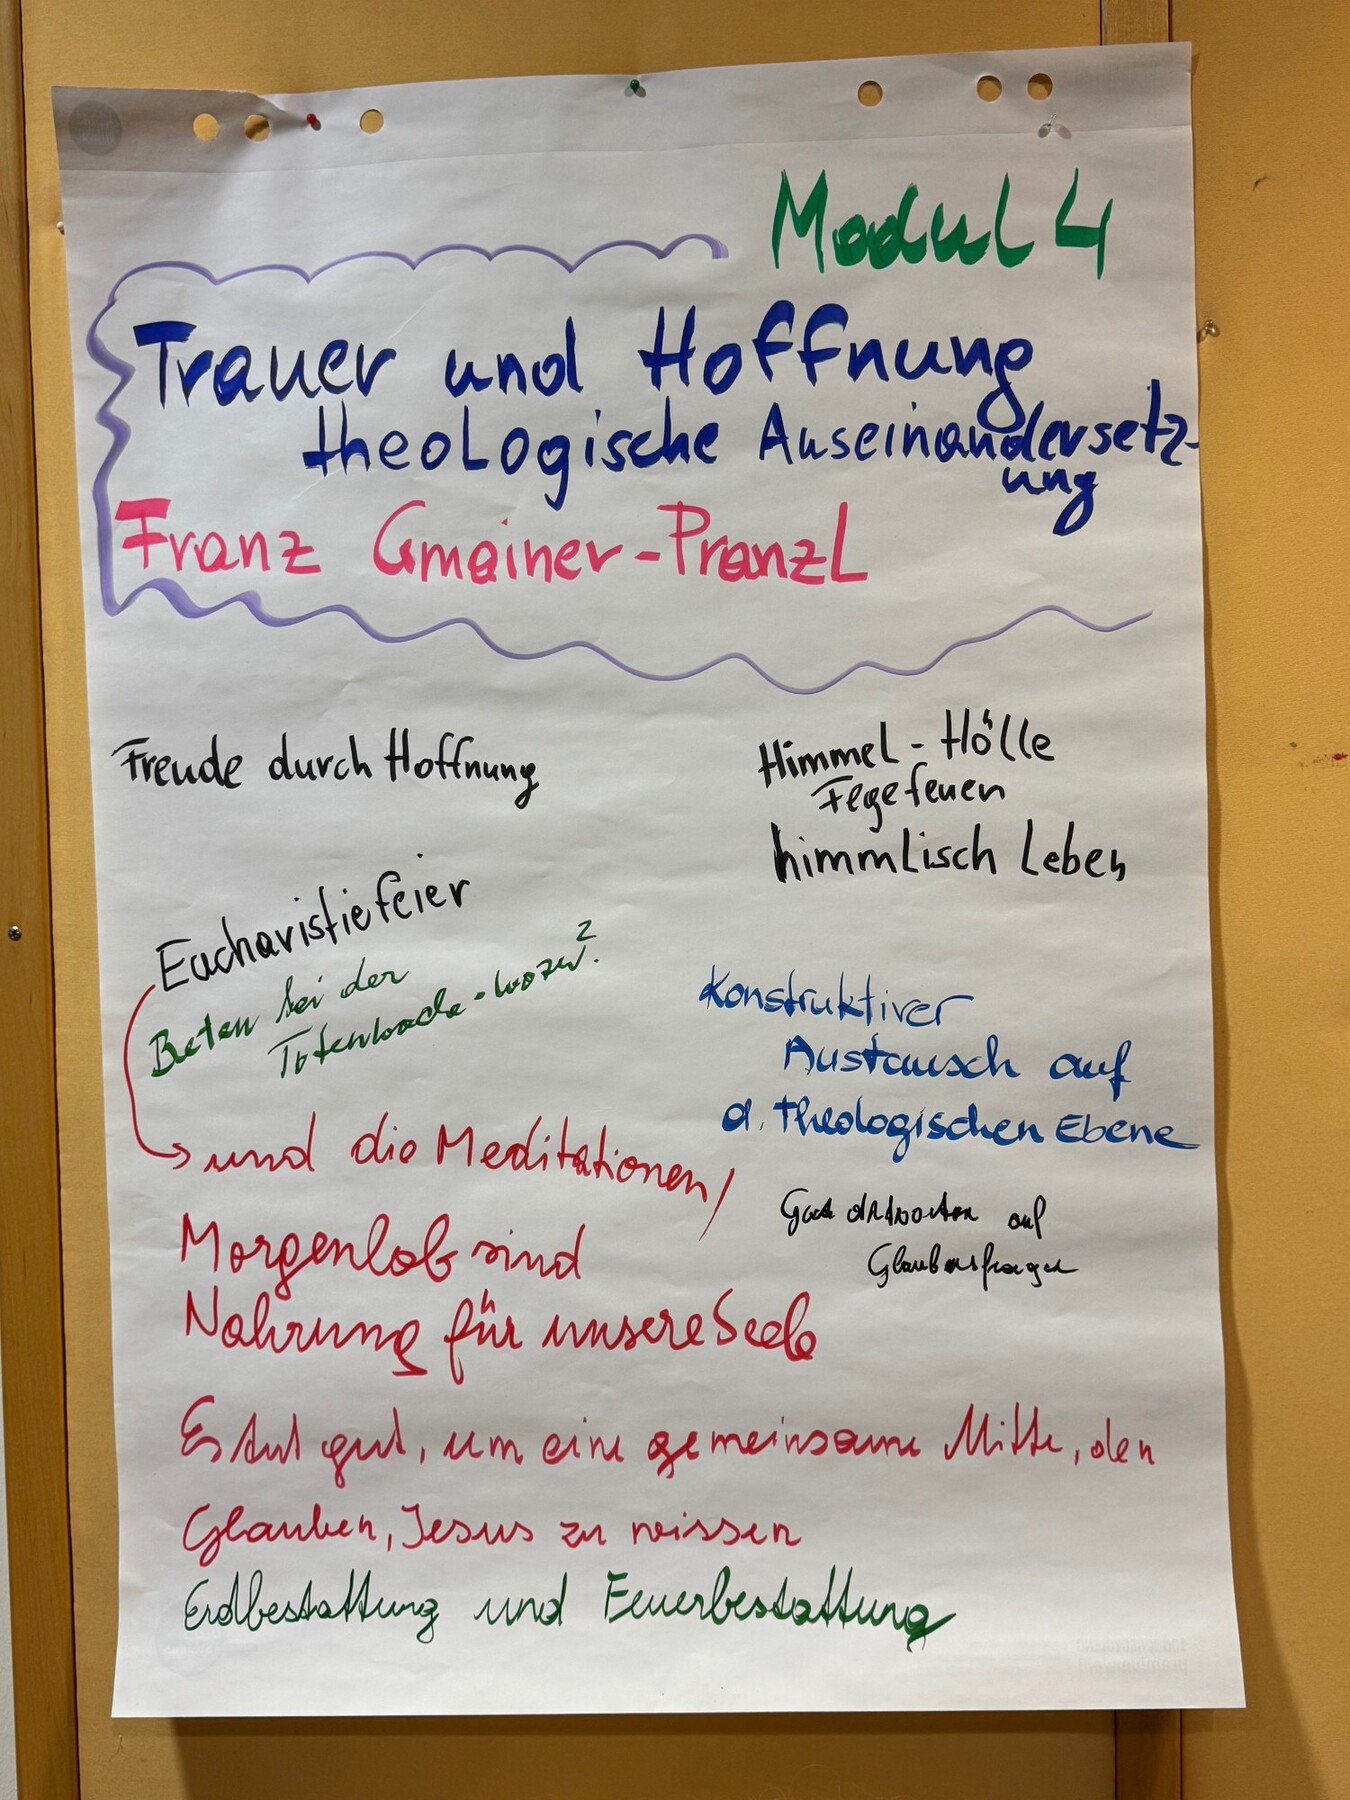 Modul 4
Trauer und Hoffnung
theologische Auseinandersetz-
ung
Franz Gmainer-Pranzl
Freude durch Hoffnung
Himmel - Hölle
Fegefeuer
himmlisch Leben
Eucharistiefeier
Beten bei der
Totenwache - wozu?
Konstruktiver
Austausch auf
d. theologischen Ebene
und die Meditationen/
Morgenlob sind
Nahrung für unsere Seele
Gute Antworten auf
Glaubensfragen
Es tut gut, um eine gemeinsame Mitte, den
Glauben, Jesus zu wissen
Erdbestattung und Feuerbestattung